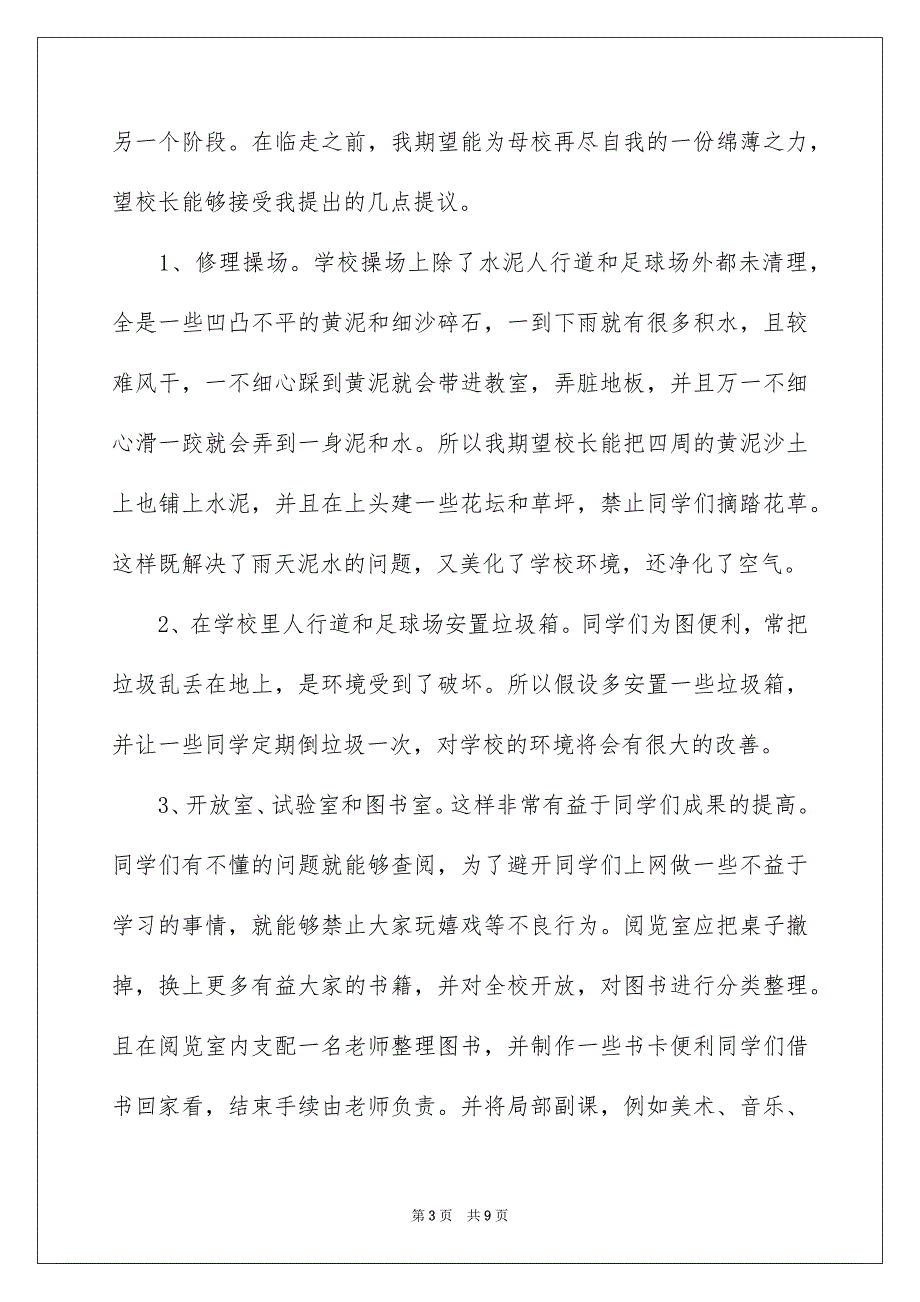 另一个阶段。在临走之前，我期望能为母校再尽自我的一份绵薄之力，
望校长能够接受我提出的几点提议。
1、修理操场。学校操场上除了水泥人行道和足球场外都未清理，
全是一些凹凸不平的黄泥和细沙碎石，一到下雨就有很多积水，且较
难风干，一不细心踩到黄泥就会带进教室，弄脏地板，并且万一不细
心滑一跤就会弄到一身泥和水。所以我期望校长能把四周的黄泥沙土
上也铺上水泥，并且在上头建一些花坛和草坪，禁止同学们摘踏花草。
这样既解决了雨天泥水的问题，又美化了学校环境，还净化了空气。
2、在学校里人行道和足球场安置垃圾箱。同学们为图便利，常把
垃圾乱丢在地上，是环境受到了破坏。所以假设多安置一些垃圾箱，
并让一些同学定期倒垃圾一次，对学校的环境将会有很大的改善。
3、开放室、试验室和图书室。这样非常有益于同学们成果的提高。
同学们有不懂的问题就能够查阅，为了避开同学们上网做一些不益于
学习的事情，就能够禁止大家玩嬉戏等不良行为。阅览室应把桌子撤
掉，换上更多有益大家的书籍，并对全校开放，对图书进行分类整理。
且在阅览室内支配一名老师整理图书，并制作一些书卡便利同学们借
书回家看，结束手续由老师负责。并将局部副课，例如美术、音乐、
第 3 页 共 9 页